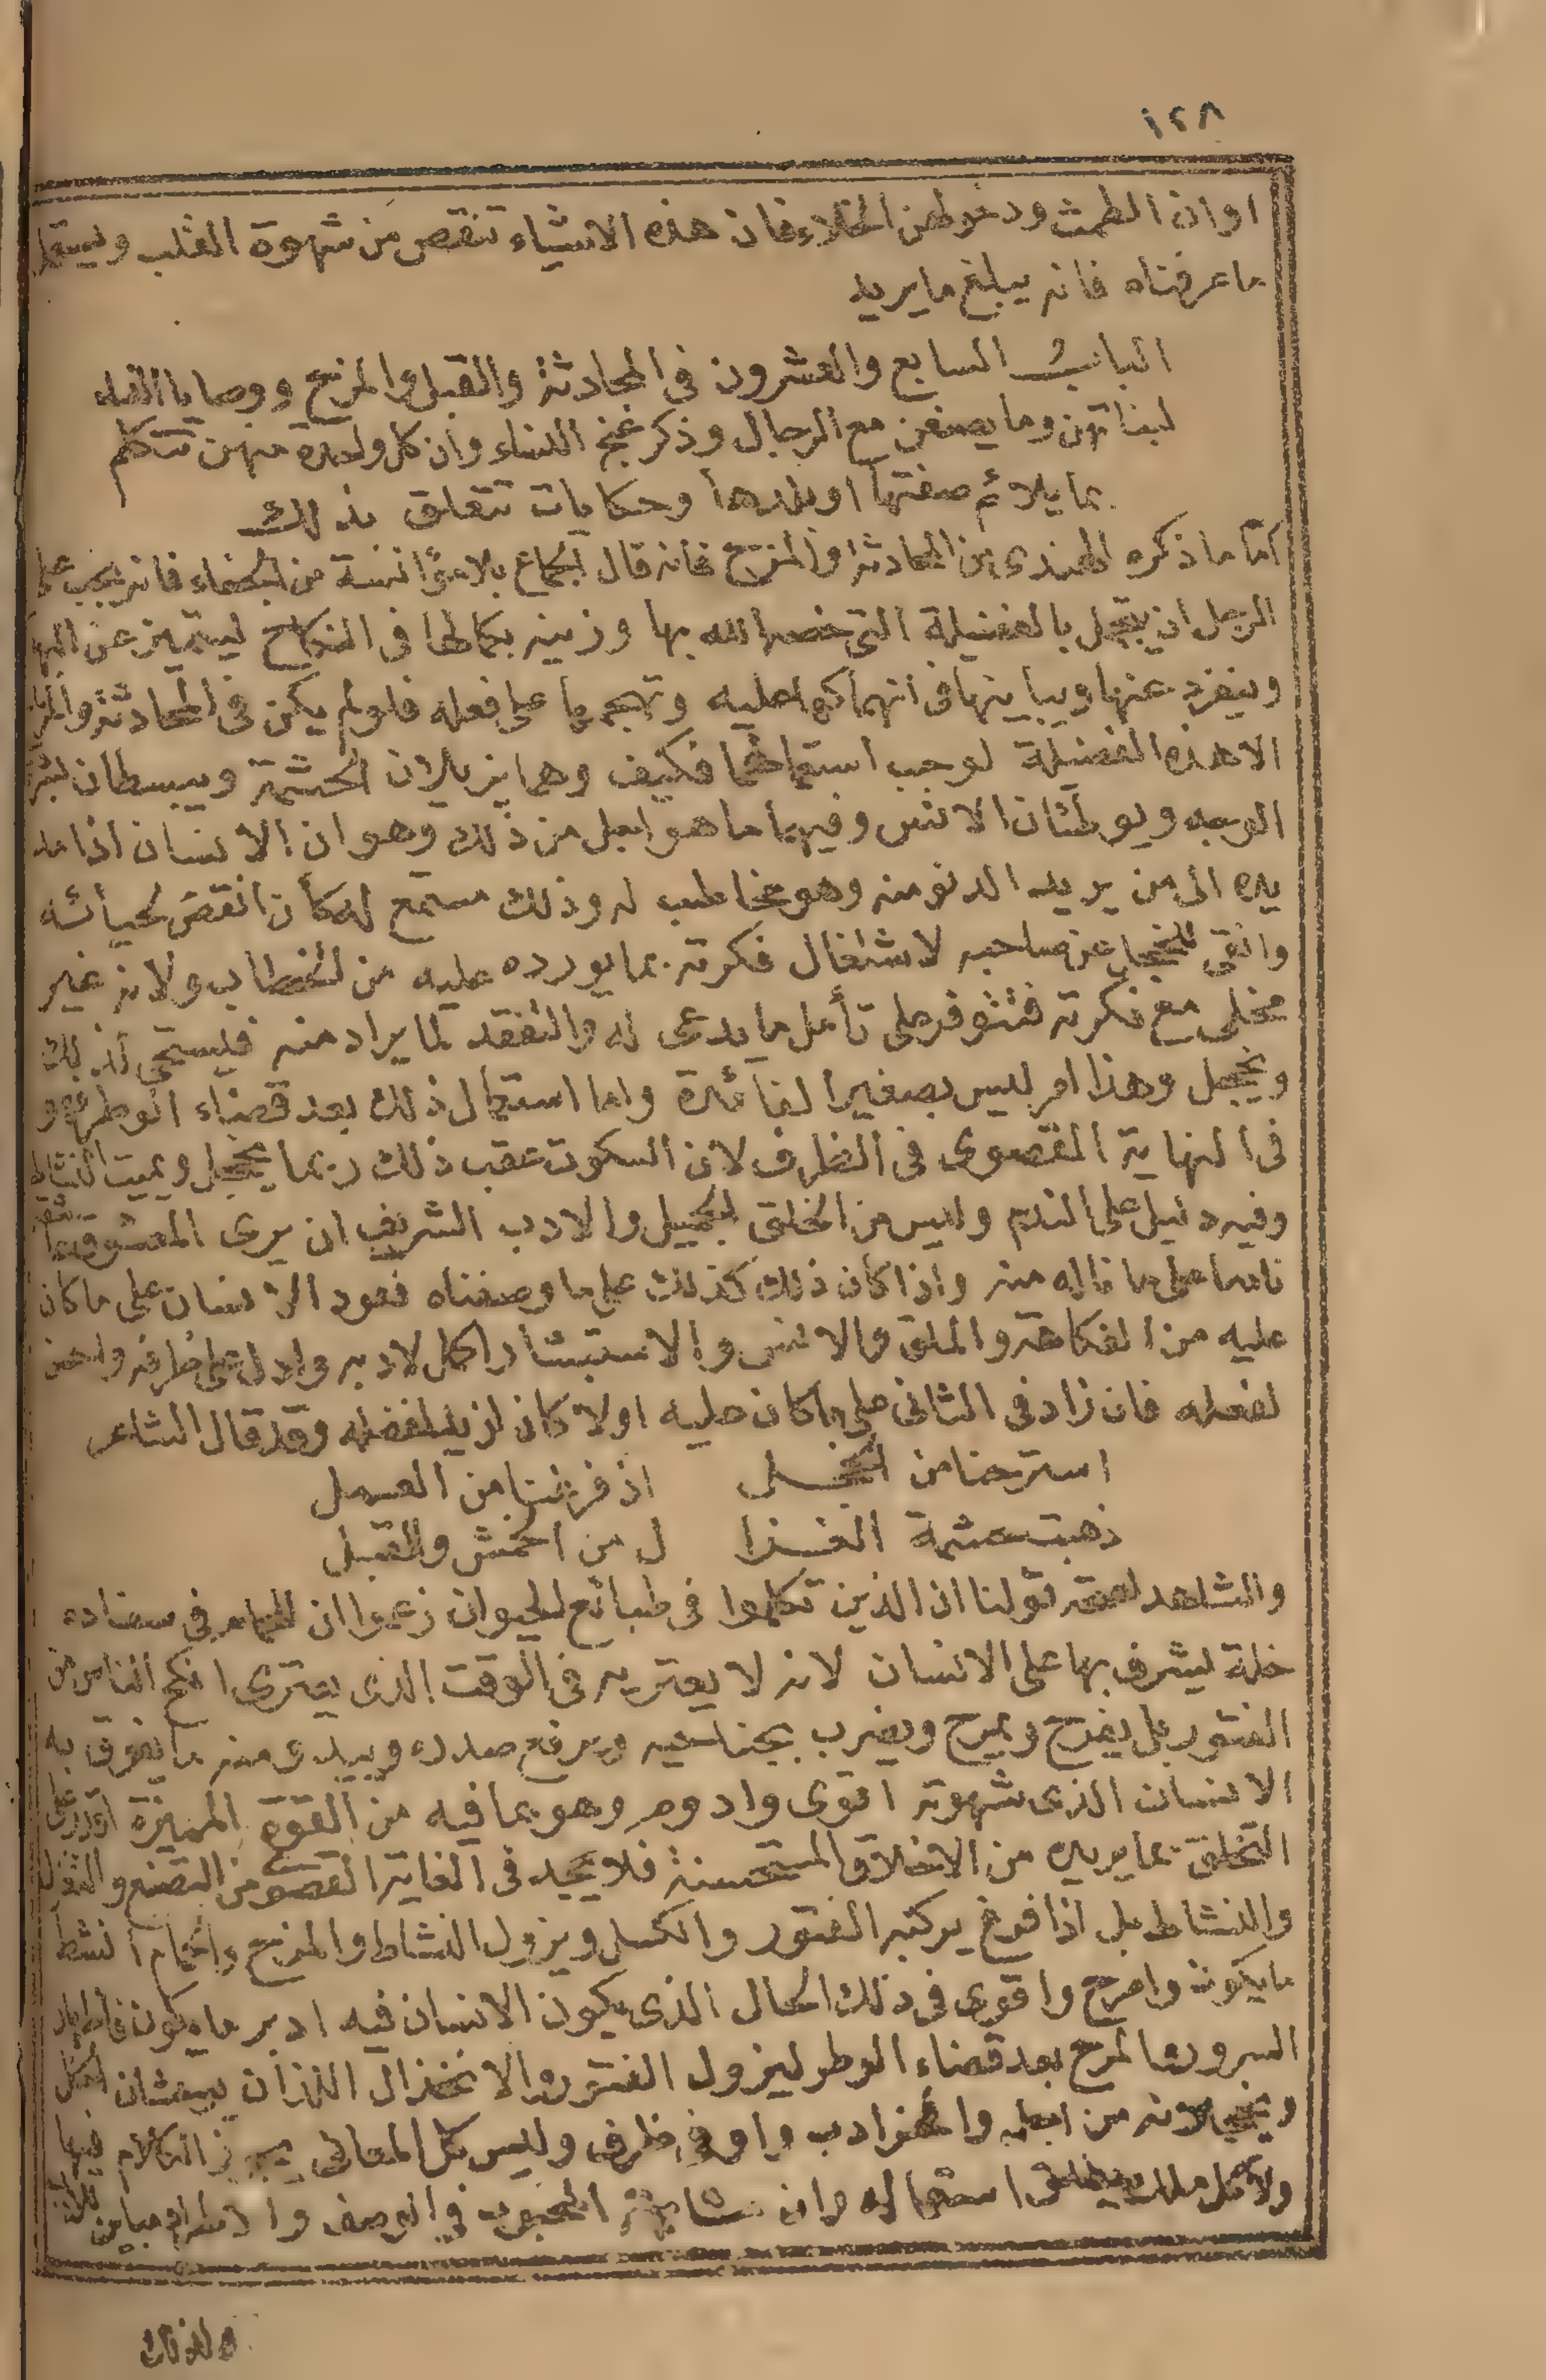 ١٢٨
اوان الطمث ودخولهن الخلاء فان هذه الاشياء تنقص من شهوة القلب ويستعمل
ما عرفناه فانه يبلغ ما يريد
الباب السابع والعشرون في المحادثة والقبل والمزح ووصايا
لبناتهن وما يصنعن مع الرجال وذكر غنج النساء وان كل واحدة منهن تتكلم
بما يلائم صنعتها او بلدها وحكايات تتعلق بذلك
امّا ما ذكره الهندى من المحادثة والمزح فانه قال الجماع بلا مؤانسة من الجفاء فانه يجب على
الرجل ان يتجمل بالفضيلة التى خصه الله بها وزينه بكمالها فى النكاح ليتميز عن البهائم
وينفرد عنها ويباينها فى انهماكها عليه وتهجمها على فعله فلو لم يكن فى المحادثة والمزح
الا هذه الفضيلة لوجب استعمالهما فكيف وهما يزيلان الحشمة ويبسطان بشرة
الوجه ويوطئان الانس وفيهما ما هو اجل من ذلك وهو ان الانسان اذا مد
يده الى من يريد الدنو منه وهو مخاطب له وذلك مستمع له كان انقص لحيائه
وانفى للخجل عن صاحبه لاشتغال فكرته بما يورده عليه من الخطاب ولانه غير
مخلى مع فكرته فتتوفر على تأمل ما يدعى له والتفقد لما يراد منه فيستحى لذلك
ويخجل وهذا امر ليس بصغير الفائدة واما استعمال ذلك بعد قضاء الوطر فهو
فى النهاية القصوى فى الظرف لان السكوت عقب ذلك ربما يخجل ويميت النشاط
وفيه دليل على الندم وليس من الخلق الجميل والادب الشريف ان يرى المعشوق
نادما على ما ناله منه واذا كان ذلك كذلك على ما وصفناه فعود الانسان على ما كان
عليه من الفكاهة والملق والانس والاستبشار اكمل لادبه وادل على ظرفه واحسن
لفعله فان زاد فى الثانى على ما كان عليه اولا كان ازيد لفضله وقد قال الشاعر
استرحنا من الخجل اذ فرغنا من العمل
ذهبت حشمة الغزا ل من الخمش والقبل
والشاهد لصحة قولنا ان الذين تكلموا فى طبائع الحيوان زعموا ان للحمام فى سفاده
خلة يشرف بها على الانسان لانه لا يعتريه فى الوقت الذى يعترى انكح الناس من
الفتور بل يفرح ويمرح ويضرب بجناحيه ويرفع صدره ويبدى منه ما يفوق به
الانسان الذى شهوته اقوى وادوم وهو بما فيه من القوة المميزة اقدر على
التخلق بما يريده من الاخلاق المستحسنة فلا يجد فى الغاية القصوى من التصنع والتغزل
والنشاط بل اذا فرغ يركبه الفتور والكسل ويزول النشاط والمزح والحمام انشط
ما يكون وامرح واقوى فى ذلك الحال الذى يكون الانسان فيه ادبر ما يكون فاظهار
السرور والمرح بعد قضاء الوطر ليزول الفتور والانخذال اللذان يبعثان الخجل
من اجل وا ادب واوفى ظرف وليس كل المعانى يجوز الكلام فيها
ولا كل ملك يطلق استعماله وان المحبوب فى الوصف
ولذلك